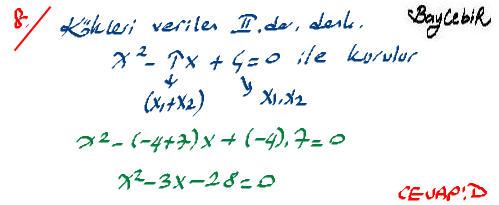 8-/ Kökleri verilen II. de. denk. BayCebiR
x² - Tx + Ç = 0 ile kurulur
(x₁+x₂) x₁.x₂
x² - (-4+7)x + (-4).7 = 0
x² - 3x - 28 = 0
CEVAP: D